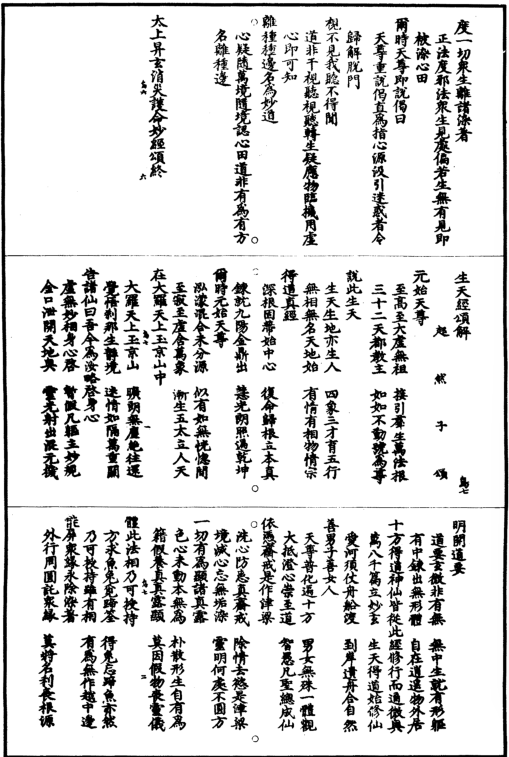 度一切衆生離諸染著
正法度邪法衆生見處偏若生無有見即
被染心田
爾時天尊即說偈曰
天尊重說偈直爲指心源汲引迷惑者令
歸解脫門
視不見我聽不得聞
道非千視聽視聽轉生疑應物臨機用虛
心即可知
離種種邊名爲妙道
心疑隨萬境隨境認心田道非有爲有方
名離種邊
太上昇玄消災護命妙經頌終
生天經頌解 鳥七
超然子頌
元始天尊
至高至大虛無祖 接引羣生萬法根
三十二天都教主 如如不動號爲尊
說此生天
生天生地亦生人 四象三才育五行
無相無名天地始 有情有相物情宗
得道真經
深根固蔕始中心 復命歸根立本真
鍊就九陽金鼎出 慧光朗照遍乾坤
爾時元始天尊
泓濛混合未分源 似有如無恍惚間
至寂至虛含萬象 漸生五太立人天
在大羅天上玉京山中
大羅天上玉京山 曠朗無塵絶往還
覺悟刹那生靜境 迷情如隔萬重關
告諸仙曰吾今爲汝略啓身心
虛無妙相身心啓 暫假凡軀主妙規
金口泄開天地奥 靈光射出混元機
明開道要
道要玄微非有無 無中生就有形軀
有中鍊出無形體 自在逍遥物外居
十方得道神仙皆從此經修行而通微奥
萬八千篇立妙玄 生天得道始修仙
愛河須仗舟船渡 到岸遺舟合自然
善男子善女人
天尊普化遍十方 男女無殊一體觀
大抵澄心崇至道 智愚凡聖總成仙
依憑齋戒是作津梁
洗心防患真齋戒 除情去慾是津梁
境滅心忘無垢染 靈明何處不圓方
一切有爲顯諸真露
色心未動本無爲 朴散形生自有爲
籍假養真真露顯 莫因假物喪靈儀
體此法相乃可捘持
方求魚兔兔歸筌 得兔忘蹄魚亦然
乃可捘持雖有相 有爲無作越中邊
能屏衆縁永除染著
外行周圓託衆縁 莫特名利長根源